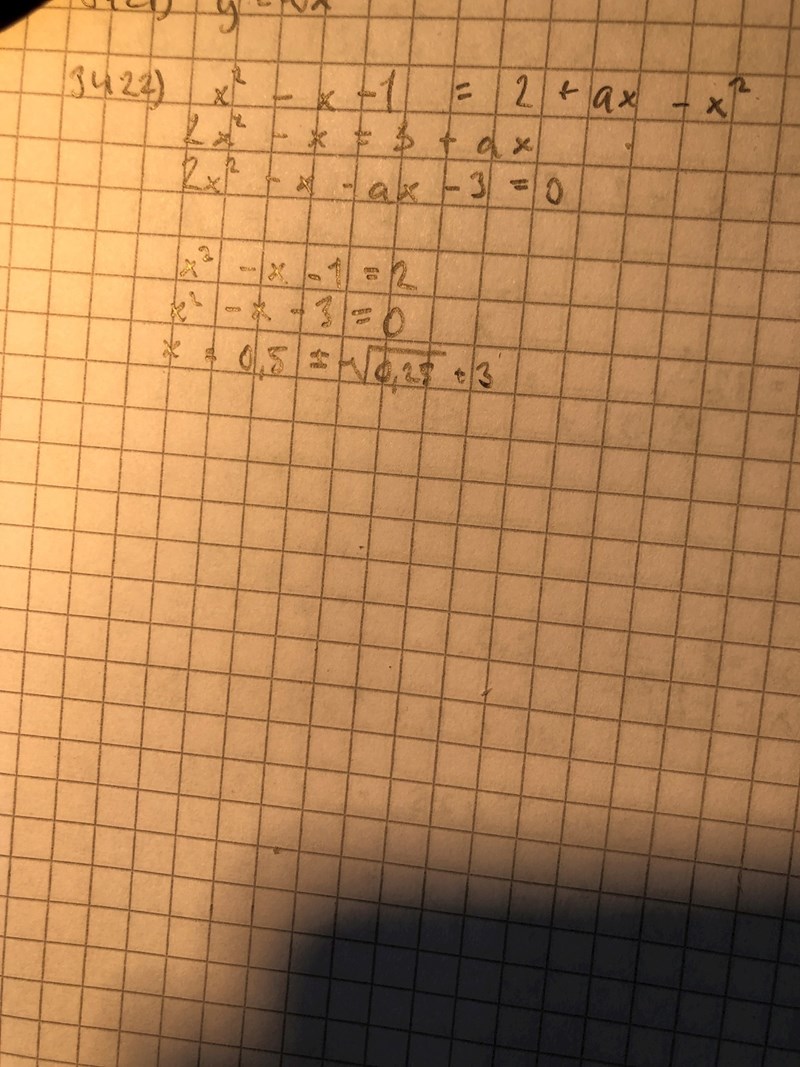 3422) x² - x - 1 = 2 + ax - x²
2x² - x = 3 + ax
2x² - x - ax - 3 = 0
x² - x - 1 = 2
x² - x - 3 = 0
x = 0,5 ± √0,25 + 3